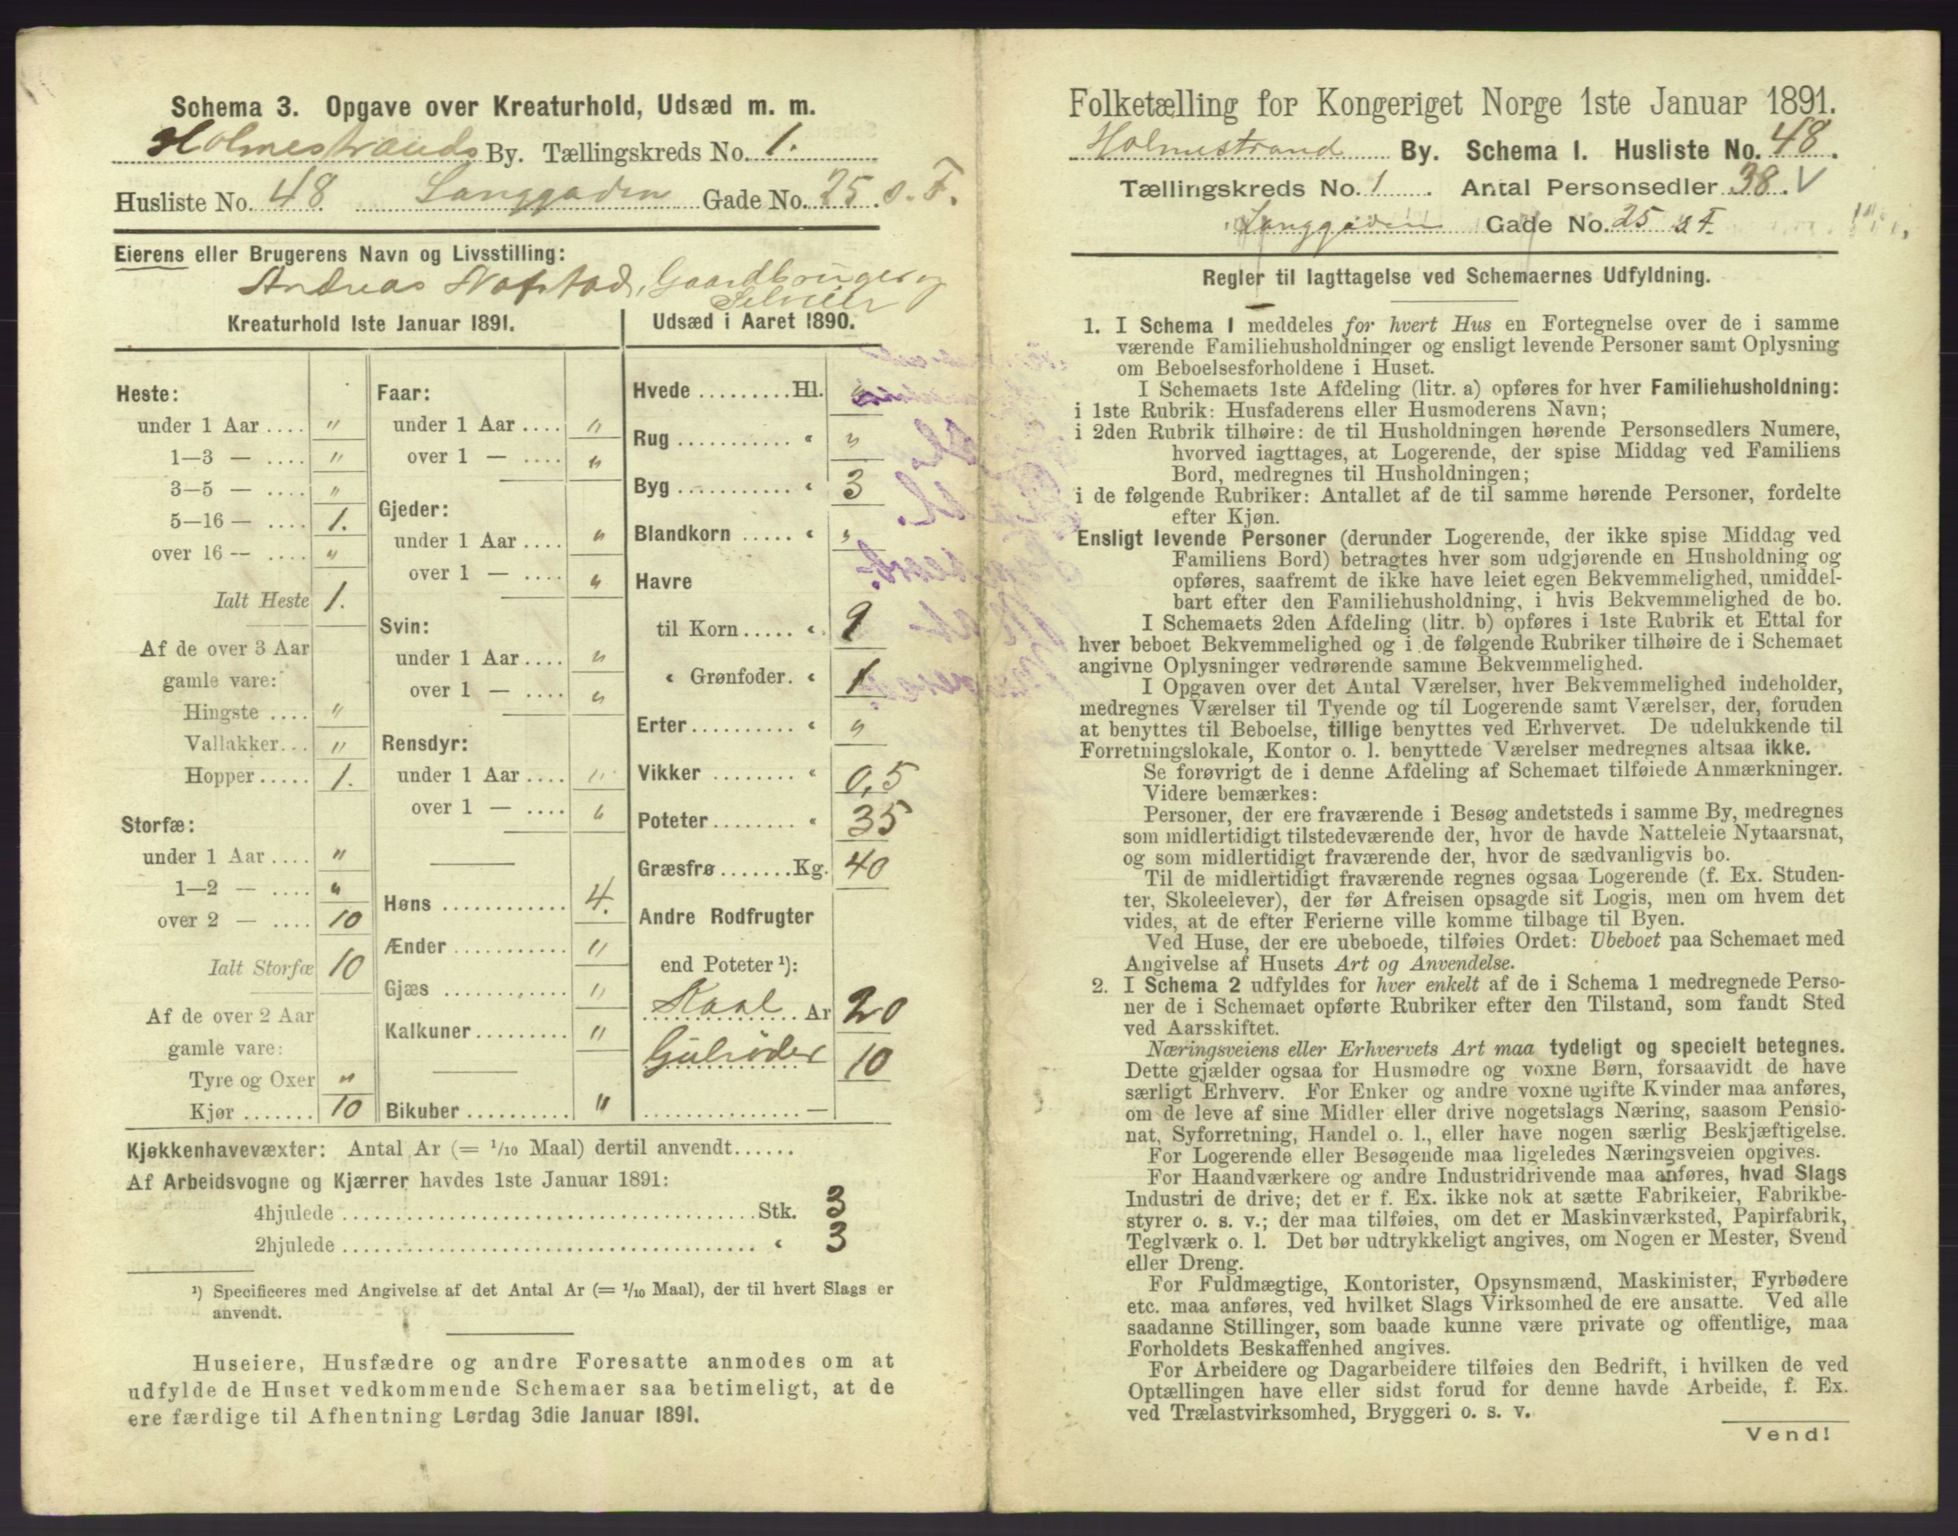 Schema 3. Opgave over Kreaturhold, Udsæd m. m.
Holmestrands By. Tællingskreds No. 1.
Husliste No. 48 Langgaden Gade No. 25 s. F.
Eierens eller Brugerens Navn og Livsstilling:
Andreas Hofstad, Gaardbruger og
Selveier
Kreaturhold 1ste Januar 1891.
Heste:
under 1 Aar .... "
1—3 — .... "
3—5 — .... "
5—16 — .... 1.
over 16 — .... "
Ialt Heste 1.
Af de over 3 Aar
gamle vare:
Hingste .... "
Vallakker... "
Hopper ..... 1.
Storfæ:
under 1 Aar .... "
1—2 — .... "
over 2 — .... 10
Ialt Storfæ 10
Af de over 2 Aar
gamle vare:
Tyre og Oxer "
Kjør ....... 10
Faar:
under 1 Aar .... "
over 1 — .... "
Gjeder:
under 1 Aar .... "
over 1 — .... "
Svin:
under 1 Aar .... "
over 1 — .... "
Rensdyr:
under 1 Aar .... "
over 1 — .... "
Høns ............ 4.
Ænder ........... "
Gjæs ............ "
Kalkuner ......... "
Bikuber .......... "
Udsæd i Aaret 1890.
Hvede ......... Hl. "
Rug ........... " "
Byg ........... " 3
Blandkorn ..... " "
Havre
til Korn ..... " 9
" Grønfoder. " 1
Erter ......... " "
Vikker ........ " 0,5
Poteter ........ " 35
Græsfrø ....... Kg. 40
Andre Rodfrugter
end Poteter ¹):
Kaal Ar 20
Gulrøder 10
............... —
Kjøkkenhavevæxter: Antal Ar (= 1/10 Maal) dertil anvendt......
Af Arbeidsvogne og Kjærrer havdes 1ste Januar 1891:
4hjulede ........................................ Stk. 3
2hjulede ........................................ " 3
¹) Specificeres med Angivelse af det Antal Ar (= 1/10 Maal), der til hvert Slags er
anvendt.
Huseiere, Husfædre og andre Foresatte anmodes om at
udfylde de Huset vedkommende Schemaer saa betimeligt, at de
ere færdige til Afhentning Lørdag 3die Januar 1891.
Folketælling for Kongeriget Norge 1ste Januar 1891.
Holmestrand By. Schema 1. Husliste No. 48.
Tællingskreds No. 1. Antal Personsedler 38. V
Langgaden Gade No. 25 s F.
Regler til Iagttagelse ved Schemaernes Udfyldning.
1. I Schema 1 meddeles for hvert Hus en Fortegnelse over de i samme
værende Familiehusholdninger og ensligt levende Personer samt Oplysning
om Beboelsesforholdene i Huset.
I Schemaets 1ste Afdeling (litr. a) opføres for hver Familiehusholdning:
i 1ste Rubrik: Husfaderens eller Husmoderens Navn;
i 2den Rubrik tilhøire: de til Husholdningen hørende Personsedlers Numere,
hvorved iagttages, at Logerende, der spise Middag ved Familiens
Bord, medregnes til Husholdningen;
i de følgende Rubriker: Antallet af de til samme hørende Personer, fordelte
efter Kjøn.
Ensligt levende Personer (derunder Logerende, der ikke spise Middag ved
Familiens Bord) betragtes hver som udgjørende en Husholdning og
opføres, saafremt de ikke have leiet egen Bekvemmelighed, umiddel-
bart efter den Familiehusholdning, i hvis Bekvemmelighed de bo.
I Schemaets 2den Afdeling (litr. b) opføres i 1ste Rubrik et Ettal for
hver beboet Bekvemmelighed og i de følgende Rubriker tilhøire de i Schemaet
angivne Oplysninger vedrørende samme Bekvemmelighed.
I Opgaven over det Antal Værelser, hver Bekvemmelighed indeholder,
medregnes Værelser til Tyende og til Logerende samt Værelser, der, foruden
at benyttes til Beboelse, tillige benyttes ved Erhvervet. De udelukkende til
Forretningslokale, Kontor o. l. benyttede Værelser medregnes altsaa ikke.
Se forøvrigt de i denne Afdeling af Schemaet tilføiede Anmærkninger.
Videre bemærkes:
Personer, der ere fraværende i Besøg andetsteds i samme By, medregnes
som midlertidigt tilstedeværende der, hvor de havde Natteleie Nytaarsnat,
og som midlertidigt fraværende der, hvor de sædvanligvis bo.
Til de midlertidigt fraværende regnes ogsaa Logerende (f. Ex. Studen-
ter, Skoleelever), der før Afreisen opsagde sit Logis, men om hvem det
vides, at de efter Ferierne ville komme tilbage til Byen.
Ved Huse, der ere ubeboede, tilføies Ordet: Ubeboet paa Schemaet med
Angivelse af Husets Art og Anvendelse.
2. I Schema 2 udfyldes for hver enkelt af de i Schema 1 medregnede Perso-
ner de i Schemaet opførte Rubriker efter den Tilstand, som fandt Sted
ved Aarsskiftet.
Næringsveiens eller Erhvervets Art maa tydeligt og specielt betegnes.
Dette gjælder ogsaa for Husmødre og voxne Børn, forsaavidt de have
særligt Erhverv. For Enker og andre voxne ugifte Kvinder maa anføres,
om de leve af sine Midler eller drive nogetslags Næring, saasom Pensio-
nat, Syforretning, Handel o. l., eller have nogen særlig Beskjæftigelse.
For Logerende eller Besøgende maa ligeledes Næringsveien opgives.
For Haandværkere og andre Industridrivende maa anføres, hvad Slags
Industri de drive; det er f. Ex. ikke nok at sætte Fabrikeier, Fabrikbe-
styrer o. s. v.; der maa tilføies, om det er Maskinværksted, Papirfabrik,
Teglværk o. l. Det bør udtrykkeligt angives, om Nogen er Mester, Svend
eller Dreng.
For Fuldmægtige, Kontorister, Opsynsmænd, Maskinister, Fyrbødere
etc. maa anføres, ved hvilket Slags Virksomhed de ere ansatte. Ved alle
saadanne Stillinger, som baade kunne være private og offentlige, maa
Forholdets Beskaffenhed angives.
For Arbeidere og Dagarbeidere tilføies den Bedrift, i hvilken de ved
Optællingen have eller sidst forud for denne havde Arbeide, f. Ex.
ved Trælastvirksomhed, Bryggeri o. s. v.
Vend!